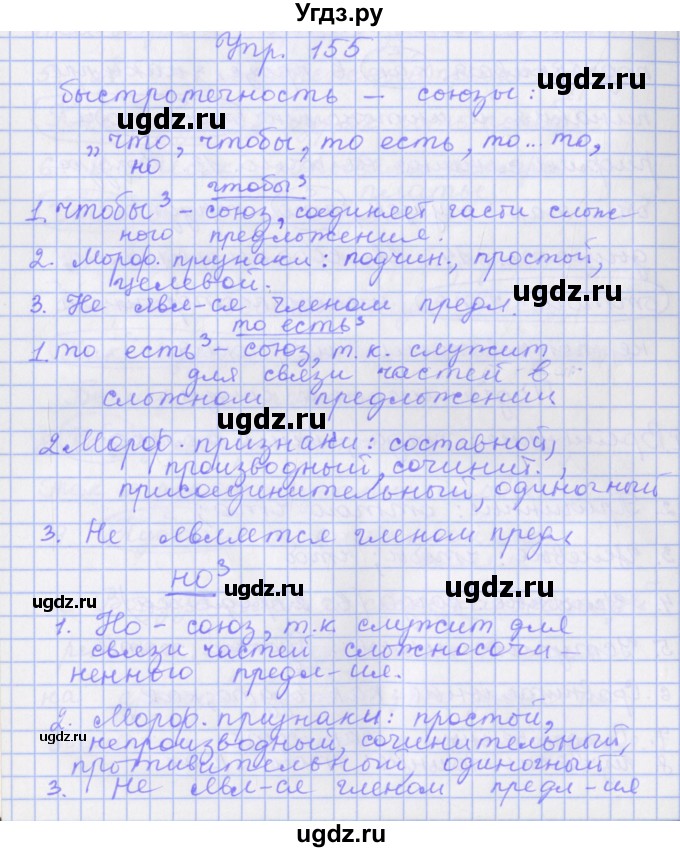 Угдз.ру
Упр. 155
быстротечность – союзы:
„что, чтобы, то есть, то.. то,
но
чтобы³
1. чтобы³ – союз, соединяет части слож-
ного предложения.
2. Морф. признаки: подчин., простой,
целевой.
3. Не явл-ся членом предл.
то есть³
1. то есть³ – союз, т.к. служит
для связи частей в
сложном предложении
2. Морф. признаки: составной,
производный, сочинит.,
присоединительный, одиночный
3. Не является членом предл
но³
1. Но – союз, т.к. служит для
связи частей сложносочи –
ненного предл-ия.
2. Морф. признаки: простой,
непроизводный, сочинительный,
противительный, одиночный
3. Не явл-ся членом предл-ия
ugdz.ru
ugdz.ru
ugdz.ru
ugdz.ru
ugdz.ru
ugdz.ru
ugdz.ru
ugdz.ru
ugdz.ru
ugdz.ru
ugdz.ru
ugdz.ru
ugdz.ru
ugdz.ru